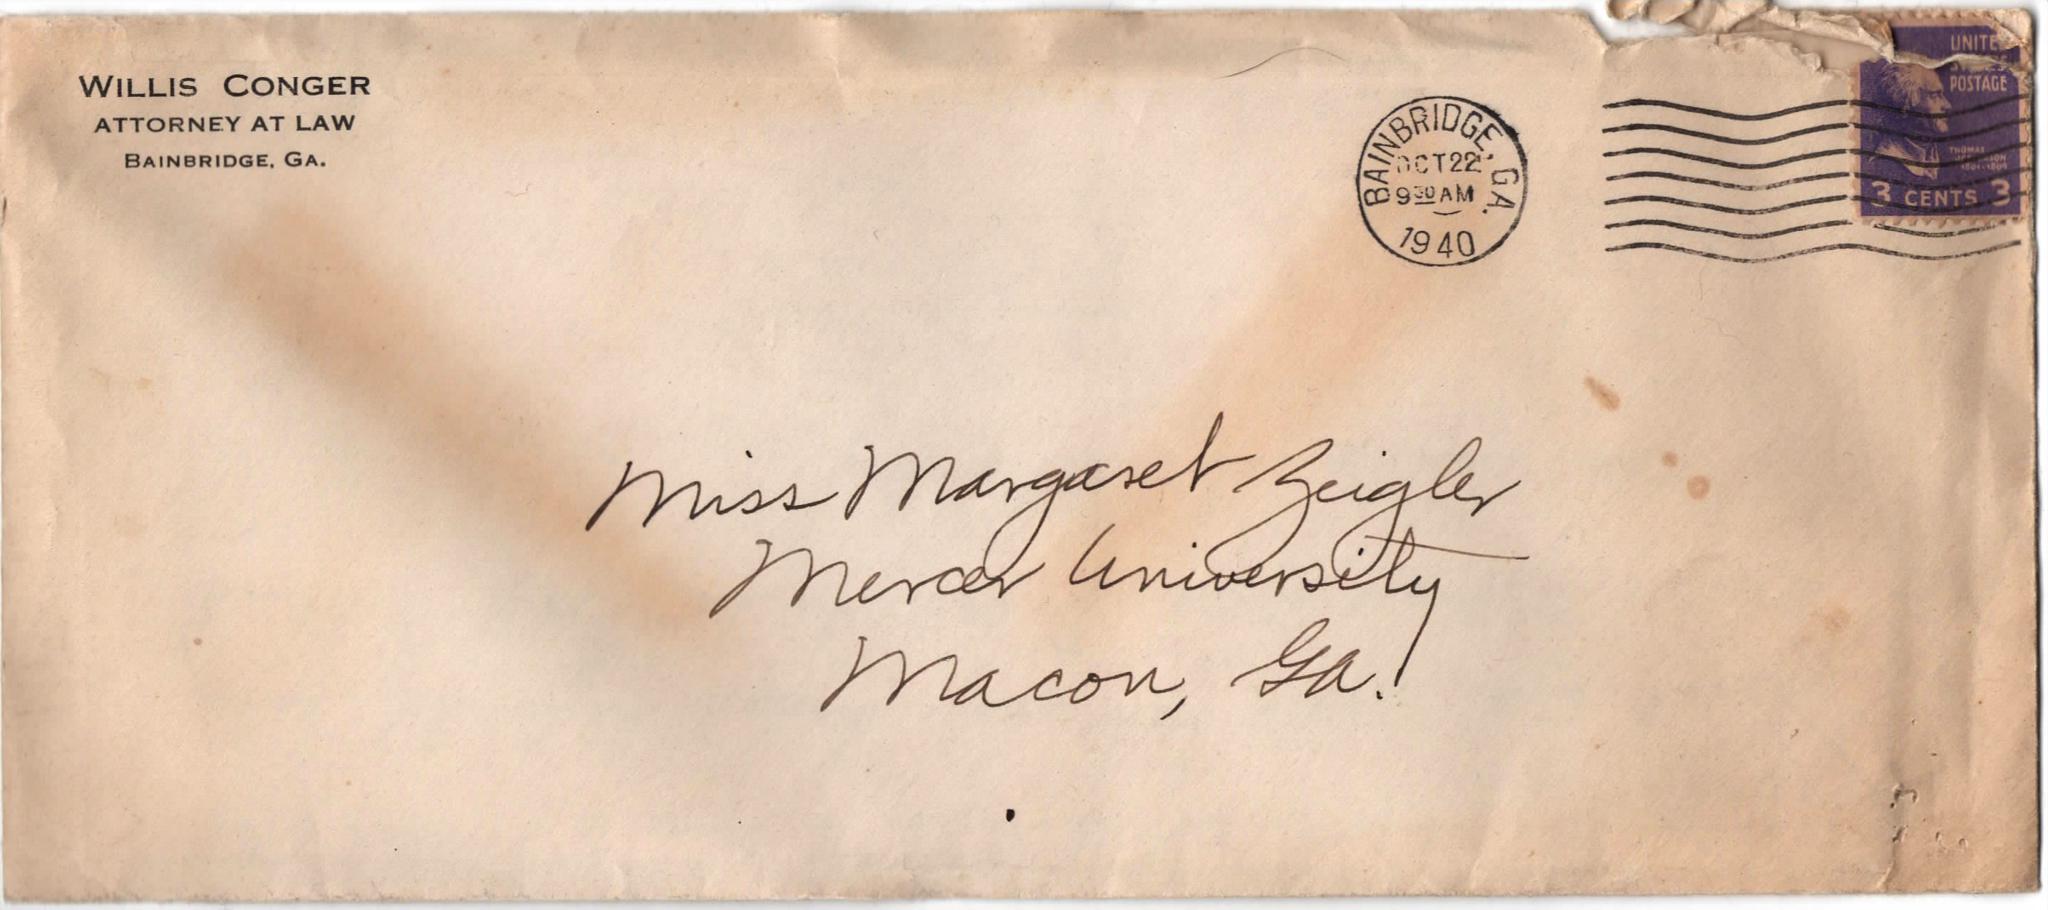 WILLIS CONGER
ATTORNEY AT LAW
BAINBRIDGE, GA.
BAINBRIDGE, GA.
OCT 22
9 30 AM
1940
UNITED
STATES
POSTAGE
THOMAS
JEFFERSON
1801-1809
3 CENTS 3
Miss Margaret Zeigler
Mercer University
Macon, Ga.